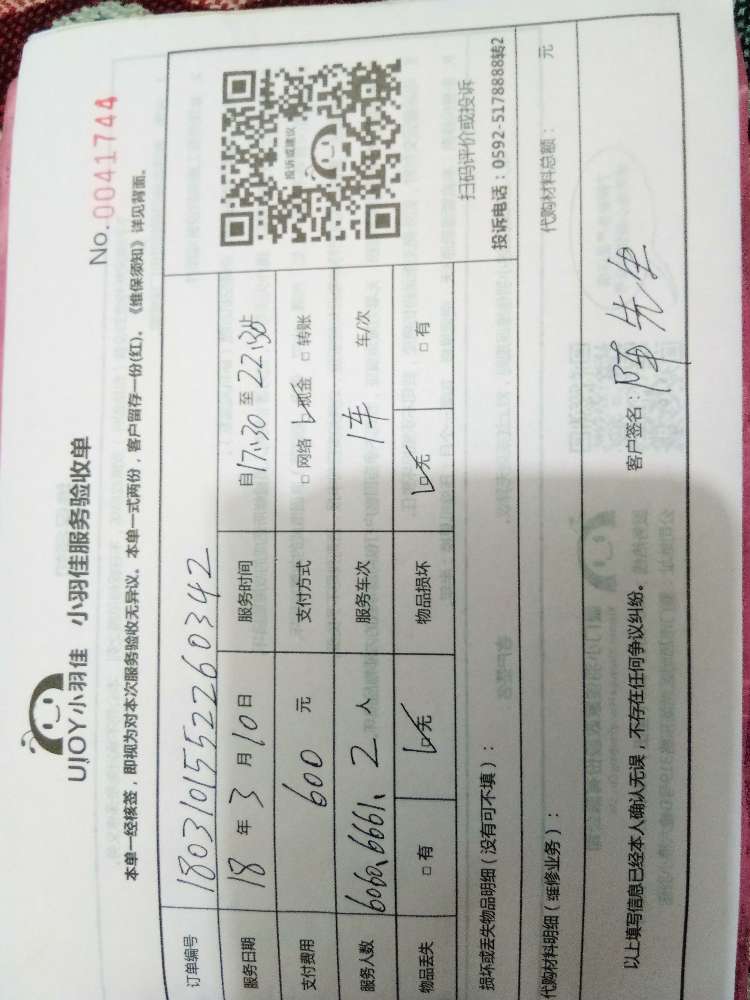 UJOY小羽佳 小羽佳服务验收单
No. 0041744
本单一经核签，即视为对本次服务验收无异议。本单一式两份，客户留存一份(红)。《维保须知》详见背面。
订单编号 180310155226 0342
服务日期 18 年 3 月 10 日 服务时间 自 17:30 至 22:30 止
支付费用 600 元 支付方式 □ 网络 ☑ 现金 □ 转账
服务人数 6060、6661、2 人 服务车次 1车 车/次
物品丢失 □ 有 ☑ 无 物品损坏 ☑ 无 □ 有
投诉或建议
扫码评价或投诉
投诉电话：0592-5178888转2
损坏或丢失物品明细（没有可不填）：
代购材料明细（维修业务）： 代购材料总额： 元
以上填写信息已经本人确认无误，不存在任何争议纠纷。 客户签名：陈先生